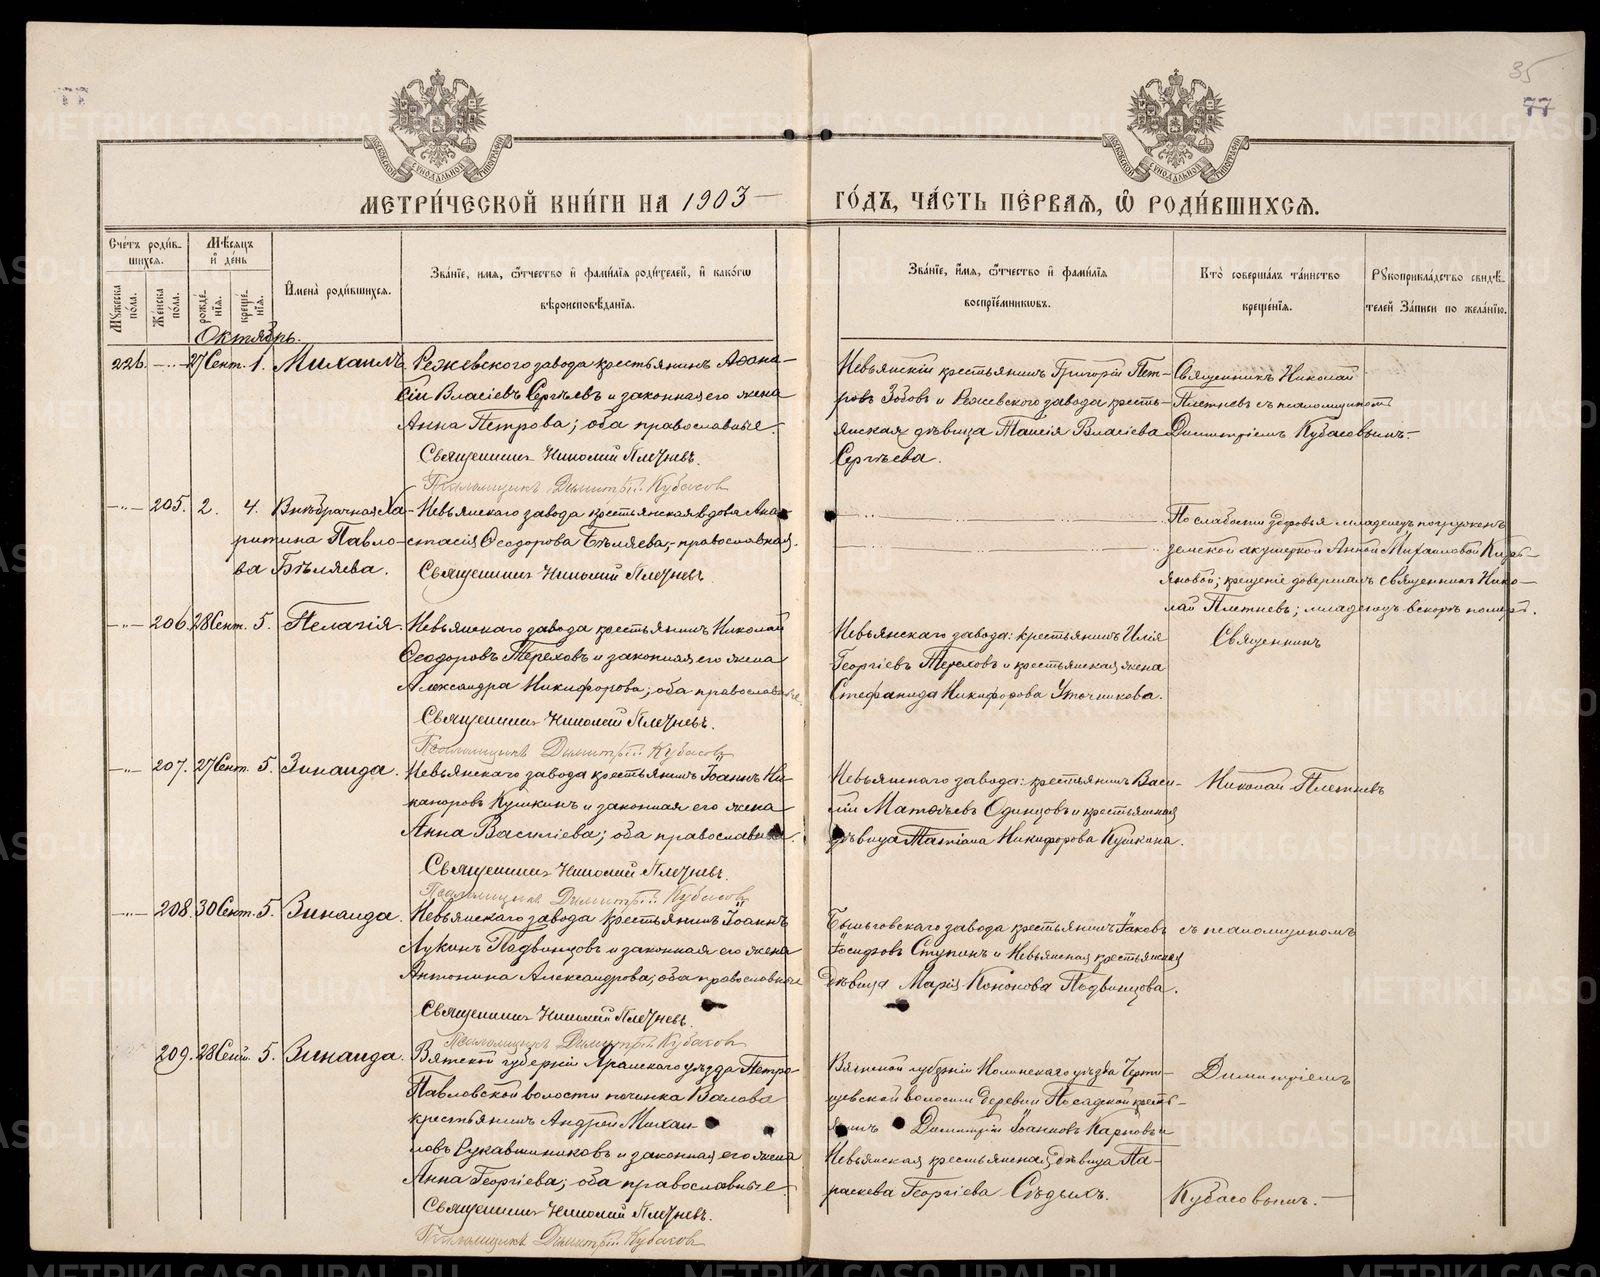 35
77
МЕТРИ́ЧЕСКОЙ КНИ́ГИ НА 1903 —
ГО́ДЪ, ЧА́СТЬ ПЕ́РВАЯ, Ѡ҆ РОДИ́ВШИХСЯ.
Сче́тъ роди́в-
шихся.
Мѣ́сяцъ
и҆ де́нь
Мꙋ́жеска по́ла.
Же́нска по́ла.
рожде́-
нїѧ.
креще́-
нїѧ.
И҆мена̀ роди́вшихся.
Зва́нїе, имя, ѻ҆́тчество и҆ фами́лїя роди́телей, и҆ како́гѡ
вѣроисповѣ́данїя.
Зва́нїе, и҆́мя, ѻ҆́тчество и҆ фами́лїя
воспрїе́мниковъ.
Кто̀ соверша́лъ та́инство
креще́нїя.
Рꙋкоприкла́дство свидѣ́-
телей За́писи по жела́нїю.
Октябрь.
226. —"— 27 Сент. 1. Михаилъ.
Режевского завода крестьянинъ Афана-
сiй Власiевъ Сергѣевъ и законная его жена
Анна Петрова; оба православные.
Священникъ Николай Плетневъ.
Псаломщикъ Димитрiй Кубасов
Невьянскiй крестьянинъ Григорiй Пет-
ровъ Зобовъ и Режевского завода кресть-
янская дѣвица Таисiя Власiева
Сергѣева.
Священникъ Николай
Плетневъ съ псаломщикомъ
Димитрiемъ Кубасовымъ.—
—"— 205. 2. 4. Внѣбрачная Ха-
ритина Павло-
ва Бѣляева.
Невьянскаго завода крестьянская вдова Ана-
стасiя Ѳеодорова Бѣляева, православная.
Священникъ Николай Плетневъ.
По слабости здоровья младенецъ погруженъ
земской акушеркой Анной Михаиловой Кирь-
яновой; крещенiе довершалъ священникъ Нико-
лай Плетневъ; младенецъ вскорѣ померъ.
—"— 206. 28 Сент. 5. Пелагiя.
Невьянскаго завода крестьянинъ Николай
Ѳеодоровъ Тереховъ и законная его жена
Александра Никифорова; оба православные.
Священникъ Николай Плетневъ.
Псаломщикъ Димитрiй Кубасовъ
Невьянскаго завода: крестьянинъ Илiя
Георгiевъ Тереховъ и крестьянская жена
Стефанида Никифорова Уточникова.
Священникъ
—"— 207. 27 Сент. 5. Зинаида.
Невьянскаго завода крестьянинъ Iоаннъ Ни-
каноровъ Кушкинъ и законная его жена
Анна Василiева; оба православные.
Священникъ Николай Плетневъ.
Псаломщикъ Димитрiй Кубасовъ
Невьянскаго завода: крестьянинъ Васи-
лiй Матѳѣевъ Одинцовъ и крестьянская
дѣвица Татiана Никифорова Кушкина.
Николай Плетневъ
—"— 208. 30 Сент. 5. Зинаида.
Невьянскаго завода крестьянинъ Iоаннъ
Лукинъ Подвинцовъ и законная его жена
Антонина Александрова; оба православные
Священникъ Николай Плетневъ.
Псаломщикъ Димитрiй Кубасов
Быньговскаго завода крестьянинъ Iаковъ
Iосифовъ Ступинъ и Невьянская крестьянская
дѣвица Марiя Кононова Подвинцова.
съ псаломщикомъ
209. 28 Сент. 5. Зинаида.
Вятской губернiи Яранскаго уѣзда Петро
Павловской волости починка Валова
крестьянинъ Андрей Михаи-
ловъ Рукавишниковъ и законная его жена
Анна Георгiева; оба православные.
Священникъ Николай Плетневъ.
Псаломщикъ Димитрiй Кубасов
Вятской губернiи Нолинскаго уѣзда
волости деревни Посадской кресть-
янинъ Димитрiй Iоанновъ Карповъ и
Невьянская крестьянская дѣвица Па-
раскева Георгiева Сѣдыхъ.
Димитрiемъ
Кубасовымъ.—